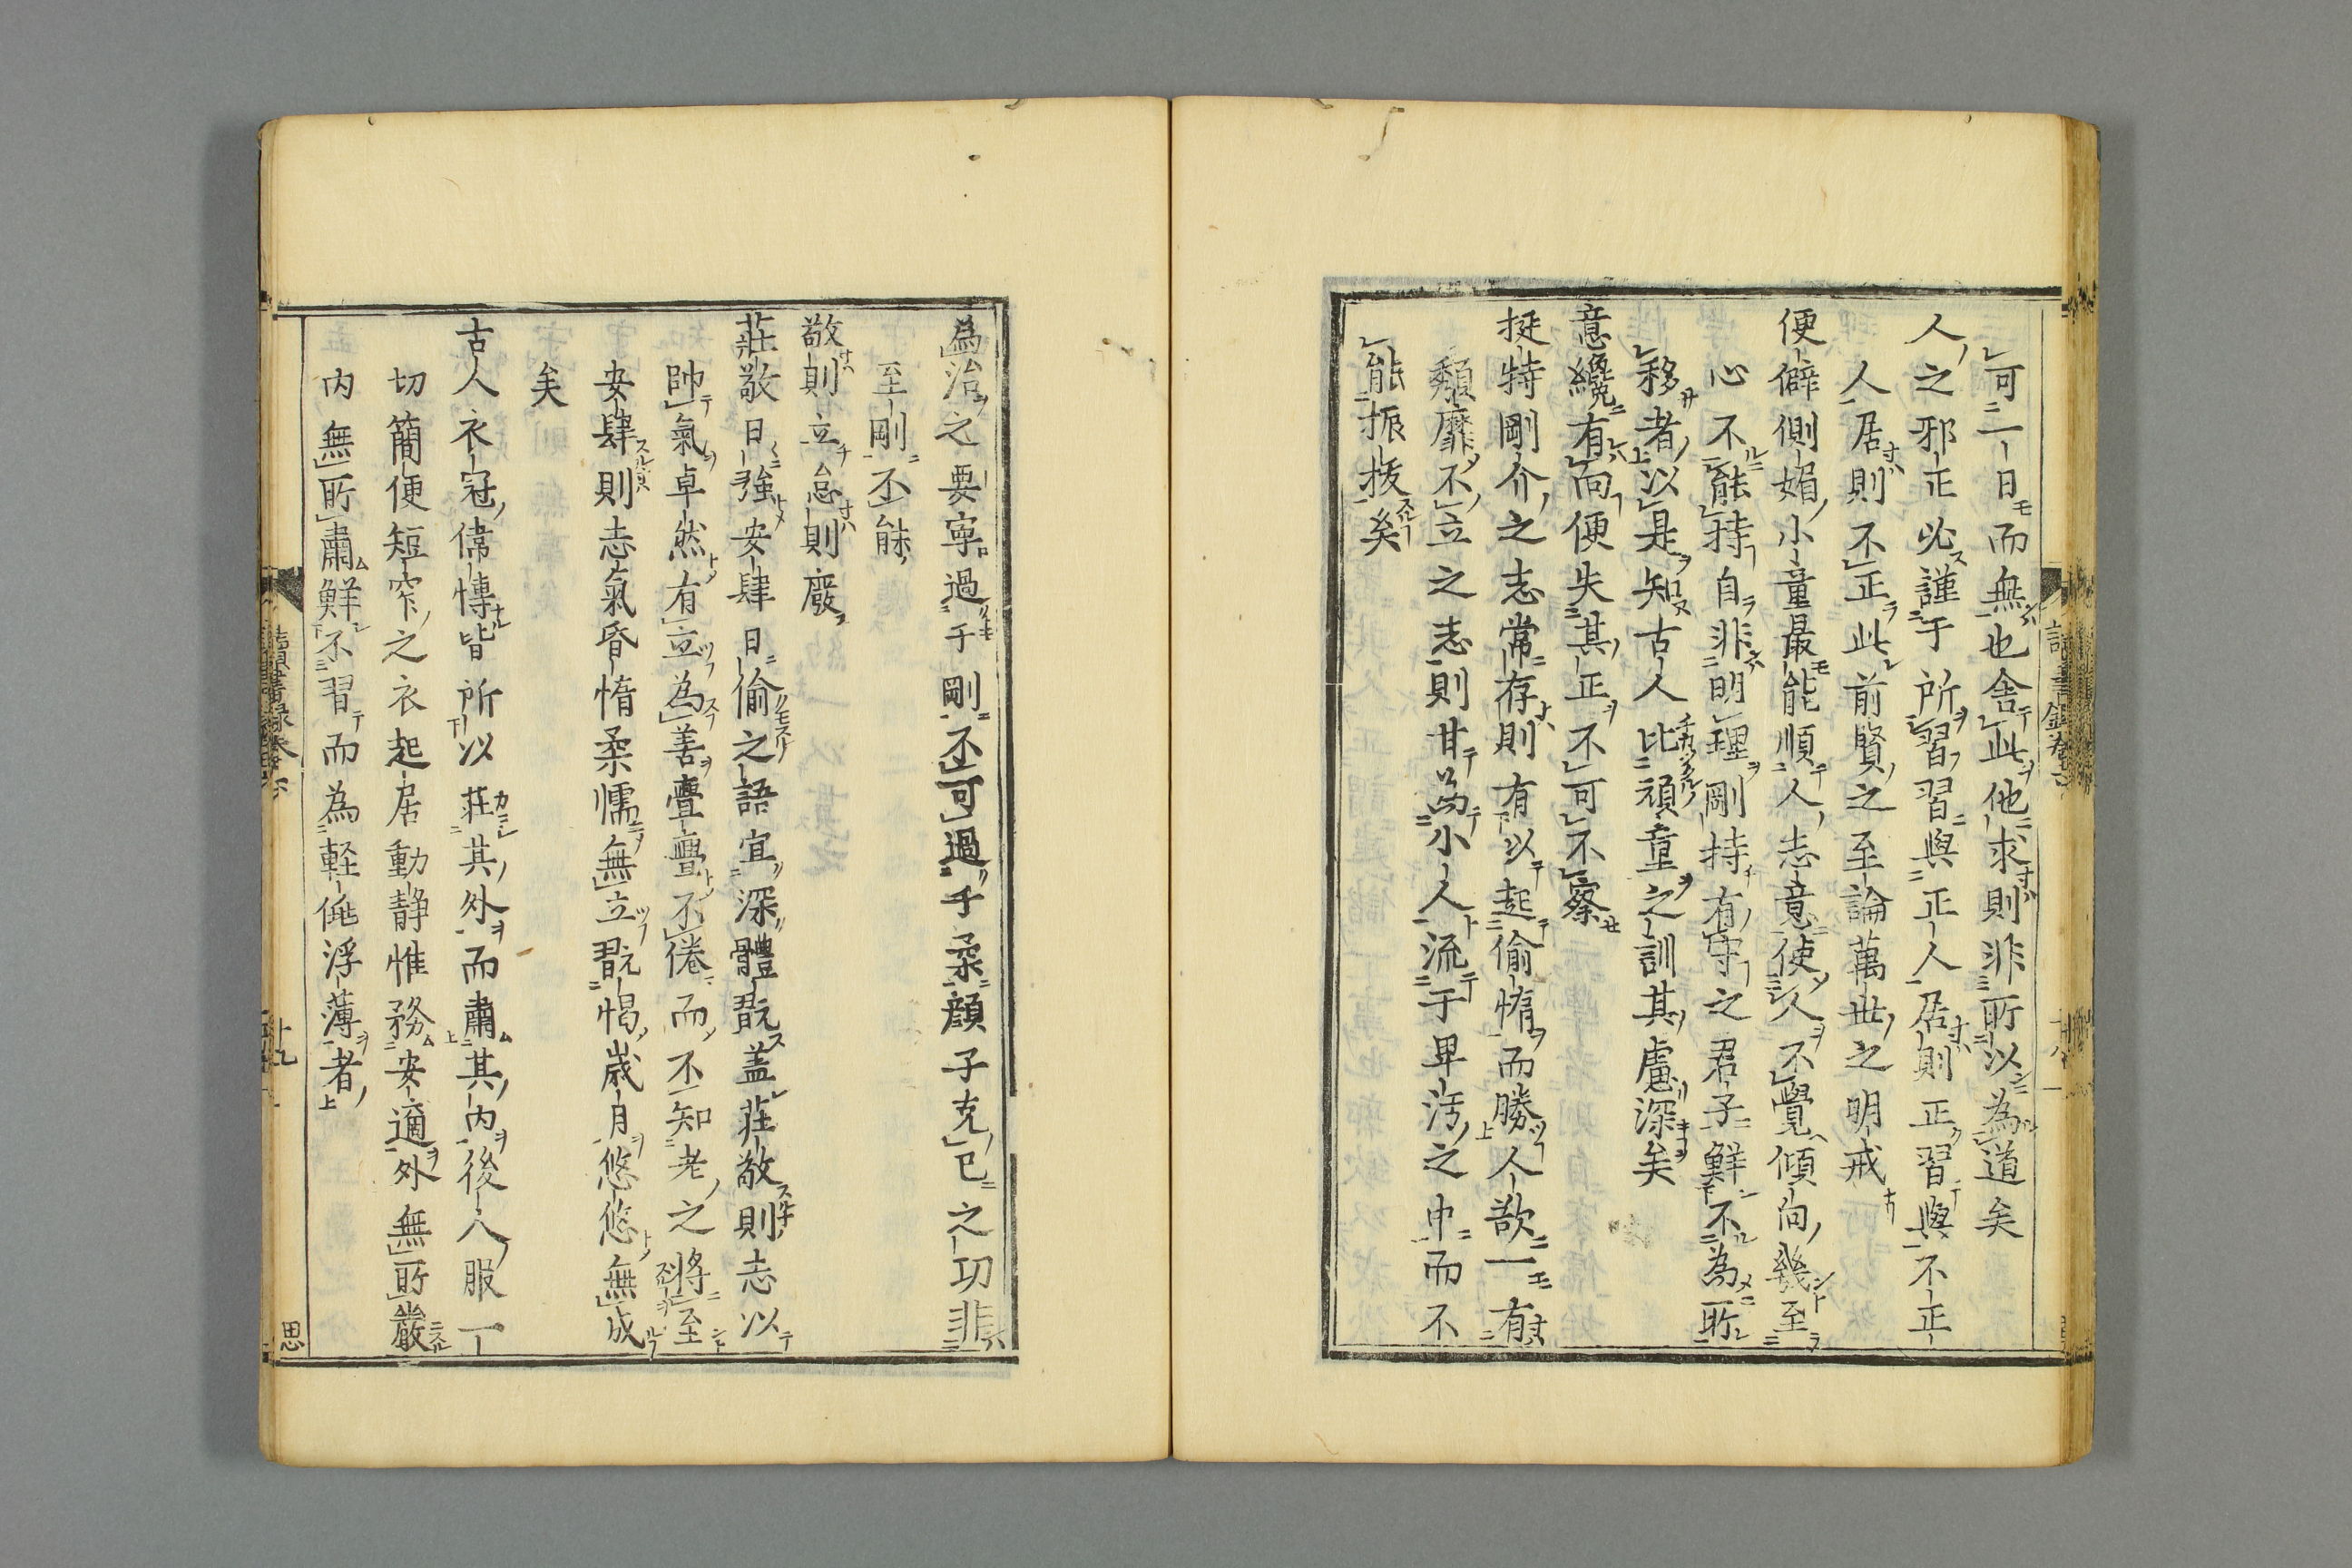 可一日而無也舎此他求則非所以為道矣
人之邪正必謹于所習習與正人居則正習與不正
人居則不正此前賢之至論萬世之明戒
便僻側媚小童最能順人志意使人不覺傾向幾至
心不能持自非明理剛持有守之君子鮮不為所
移者以是知古人比頑童之訓其慮深矣
意纔有向便失其正不可不察
挺特剛介之志常存則有以起偷惰而勝人欲一有
頽靡不立之志則甘為小人流于卑汚之中而不
能振抜矣
為治之要寜過于剛不可過于柔顔子克己之功非
至剛不能
敬則立怠則廢
莊敬日強安肆日偷之語宜深體翫盖莊敬則志以
帥氣卓然有立為善亹亹不倦而不知老之將至
安肆則志氣昏惰柔懦無立翫愒歳月悠悠無成
矣
古人衣冠偉慱皆所以莊其外而肅其内後人服一
切簡便短窄之衣起居動静惟務安適外無所嚴
内無所肅鮮不習而為軽佻浮薄者
讀書録巻六
十九
思